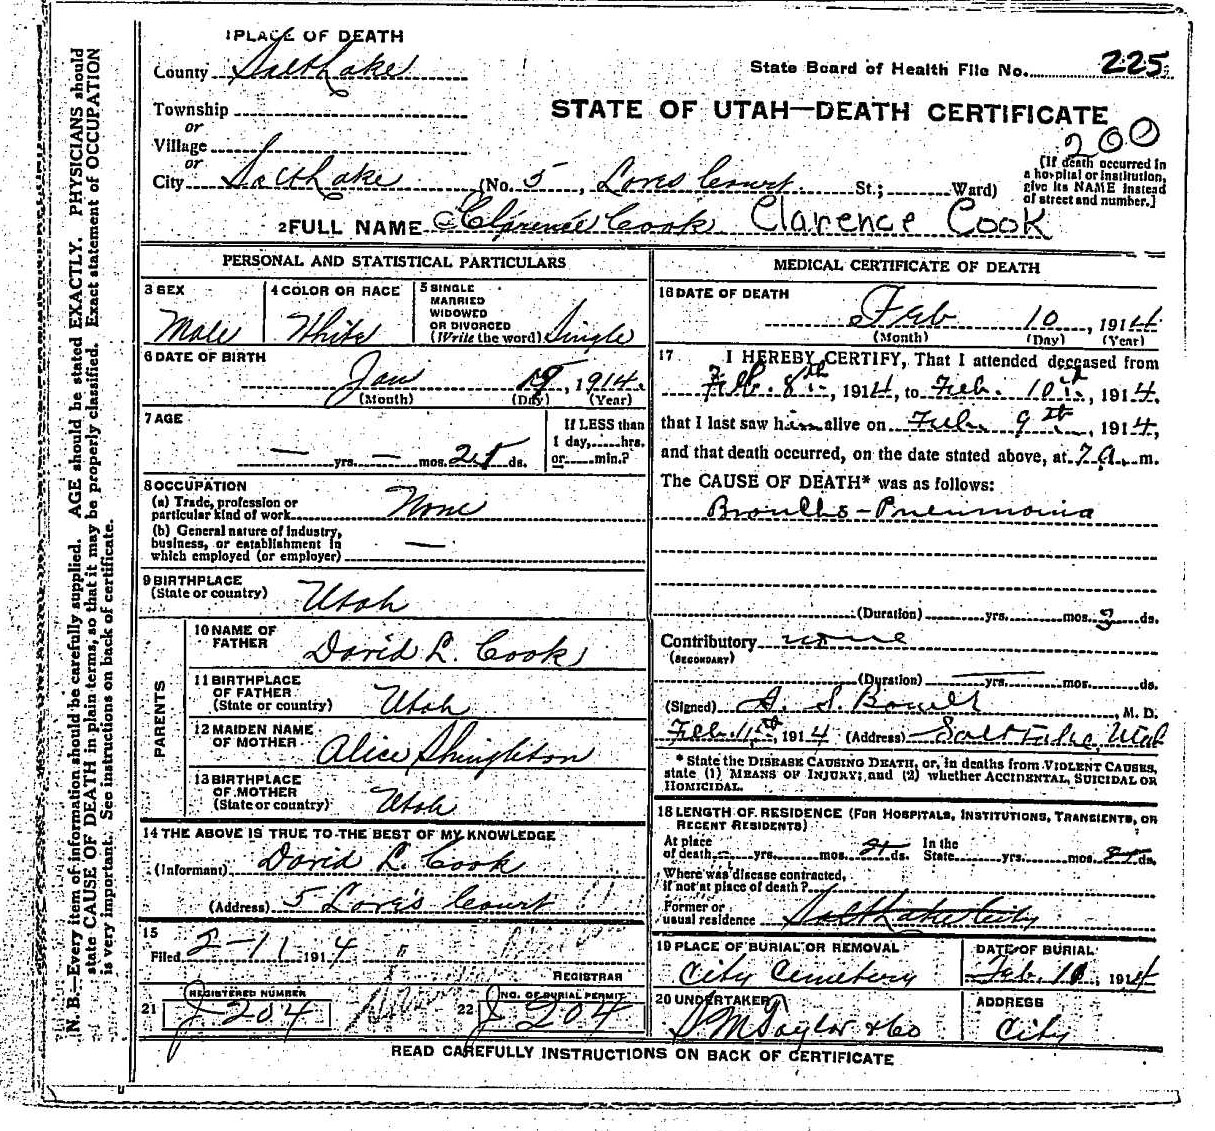 1 PLACE OF DEATH
County Salt Lake
State Board of Health File No. 225
Township
or
Village
or
STATE OF UTAH—DEATH CERTIFICATE
200
City Salt Lake (No. 5, Loves Court St.; Ward)
(If death occurred in
a hospital or institution,
give its NAME instead
of street and number.]
2 FULL NAME Clarence Cook Clarence Cook
PERSONAL AND STATISTICAL PARTICULARS
3 SEX
Male
4 COLOR OR RACE
White
5 SINGLE
MARRIED
WIDOWED
OR DIVORCED
(Write the word) Single
6 DATE OF BIRTH
Jan , 1914.
(Month) (Day) (Year)
7 AGE
— yrs. — mos. ds.
If LESS than
1 day, hrs.
or min.?
8 OCCUPATION
(a) Trade, profession or
particular kind of work None
(b) General nature of industry,
business, or establishment in
which employed (or employer) —
9 BIRTHPLACE
(State or country) Utah
PARENTS
10 NAME OF
FATHER
David L. Cook
11 BIRTHPLACE
OF FATHER
(State or country) Utah
12 MAIDEN NAME
OF MOTHER Alice Shingleton
13 BIRTHPLACE
OF MOTHER
(State or country) Utah
14 THE ABOVE IS TRUE TO THE BEST OF MY KNOWLEDGE
(Informant) David L. Cook
(Address) 5 Love's Court
15
Filed 2-11 1914
REGISTRAR
21 REGISTERED NUMBER
J 204
22 NO. OF BURIAL PERMIT
J 204
MEDICAL CERTIFICATE OF DEATH
16 DATE OF DEATH
Feb 10, 1914
(Month) (Day) (Year)
17 I HEREBY CERTIFY, That I attended deceased from
Feb. 8th, 1914, to Feb. 10th, 1914.
that I last saw him alive on Feb. 9th, 1914,
and that death occurred, on the date stated above, at 7 a. m.
The CAUSE OF DEATH* was as follows:
Broncho-Pneumonia
(Duration) yrs. mos. 3 ds.
Contributory none
(SECONDARY)
(Duration) yrs. mos. ds.
(Signed) S. , M. D.
Feb. 11th, 1914 (Address) Salt Lake, Utah
* State the DISEASE CAUSING DEATH, or, in deaths from VIOLENT CAUSES,
state (1) MEANS OF INJURY; and (2) whether ACCIDENTAL, SUICIDAL OR
HOMICIDAL.
18 LENGTH OF RESIDENCE (FOR HOSPITALS, INSTITUTIONS, TRANSIENTS, OR
RECENT RESIDENTS)
At place In the
of death yrs. mos. ds. State yrs. mos. ds.
Where was disease contracted,
if not at place of death?
Former or
usual residence Salt Lake City
19 PLACE OF BURIAL OR REMOVAL
City Cemetery
DATE OF BURIAL
Feb. , 1914
20 UNDERTAKER
S M Taylor & Co
ADDRESS
City
READ CAREFULLY INSTRUCTIONS ON BACK OF CERTIFICATE
N. B.—Every item of information should be carefully supplied. AGE should be stated EXACTLY. PHYSICIANS should
state CAUSE OF DEATH in plain terms, so that it may be properly classified. Exact statement of OCCUPATION
is very important. See instructions on back of certificate.